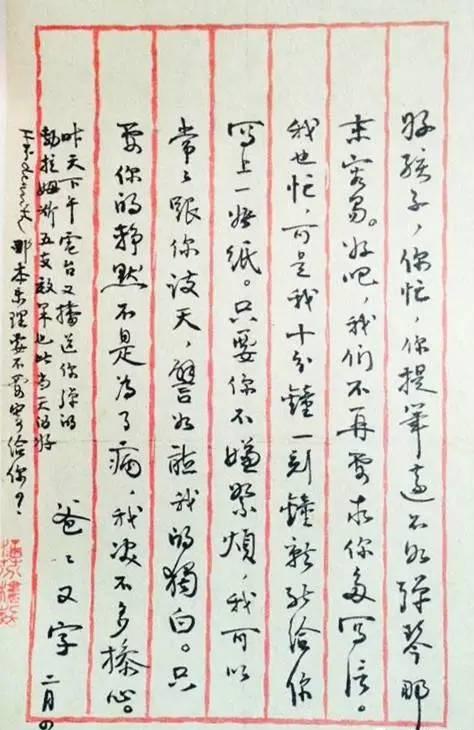 好孩子，你忙，你提筆還不如彈琴那
末容易。好吧，我们不再要求你多写信。
我也忙，可是我十分鐘一刻鐘就能给你
写上一张纸。只要你不嫌繁煩，我可以
常々跟你谈天，譬如聽我的獨白。只
要你的静默不是為了病，我决不多操心。
爸々又字 二月
昨天下午電台又播送你弹的
勃拉姆斯五支效果也比當天的好
那本乐理要不要寄给你？